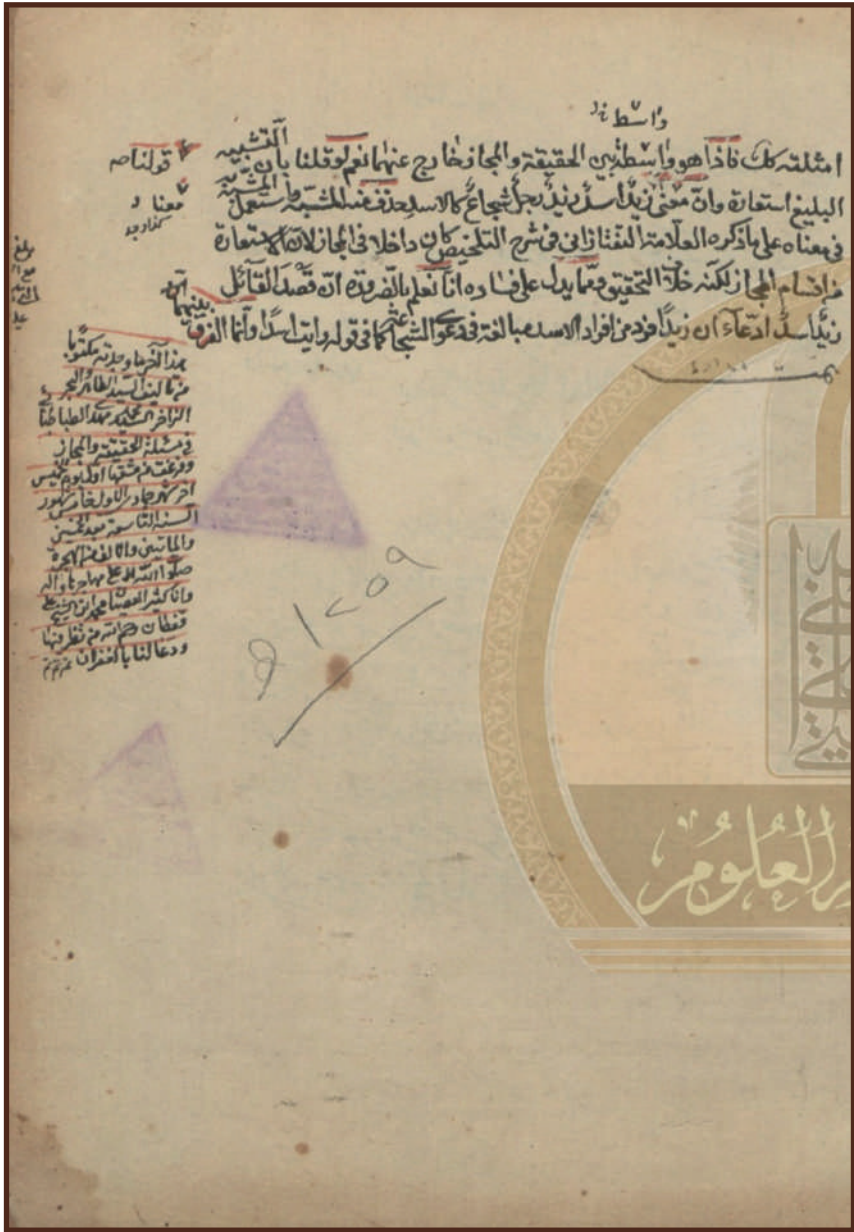 واسطة
امثلته كك فاذا هو واسطة بين الحقيقة والمجاز خارج عنهما نعم لو قلنا بان التشبيه
البليغ استعارة وان معنى زيد اسد زيد رجل شجاع كالاسد فحذف المشبه واستعمل المشبه به
فى معناه على ما ذكره العلامة التفتازانى فى شرح التلخيص كان داخلا فى المجاز لان الاستعارة
من اقسام المجاز لكنه خلاف التحقيق ومما يدل على فساده انا نعلم بالضرورة ان قصد القائل
زيد اسد ادعاء ان زيدا فرد من افراد الاسد مبالغة فى دعوى الشجاعة كما فى قوله رايت اسدا وانما الفرق
بينهما
تمت
قولنا صه
معناه
كذا وجد
هذا آخر ما وجدته مكتوبا
من تاليف السيد الطاهر والبحر
الزاخر السيد مهدى الطباطبائى
فى مسئلة الحقيقة والمجاز
وفرغت من مشقها يوم الخميس
آخر شهر جمادى الاول خامس شهور
السنة التاسعة بعد الخمسين
والمائتين والالف من الهجرة
صلوات الله على مهاجرها وآله
وانا كثير العصيان محمد ابن الشيخ على
قفطان رحم الله من نظر فيها
ودعا لنا بالغفران
١٢٥٩
العلوم